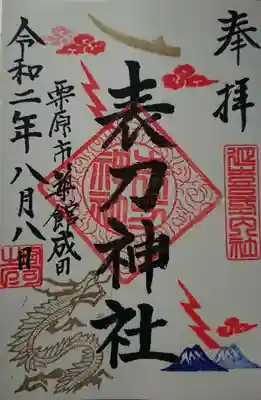 奉拝
表刀神社
栗原市築館成田
令和二年八月八日